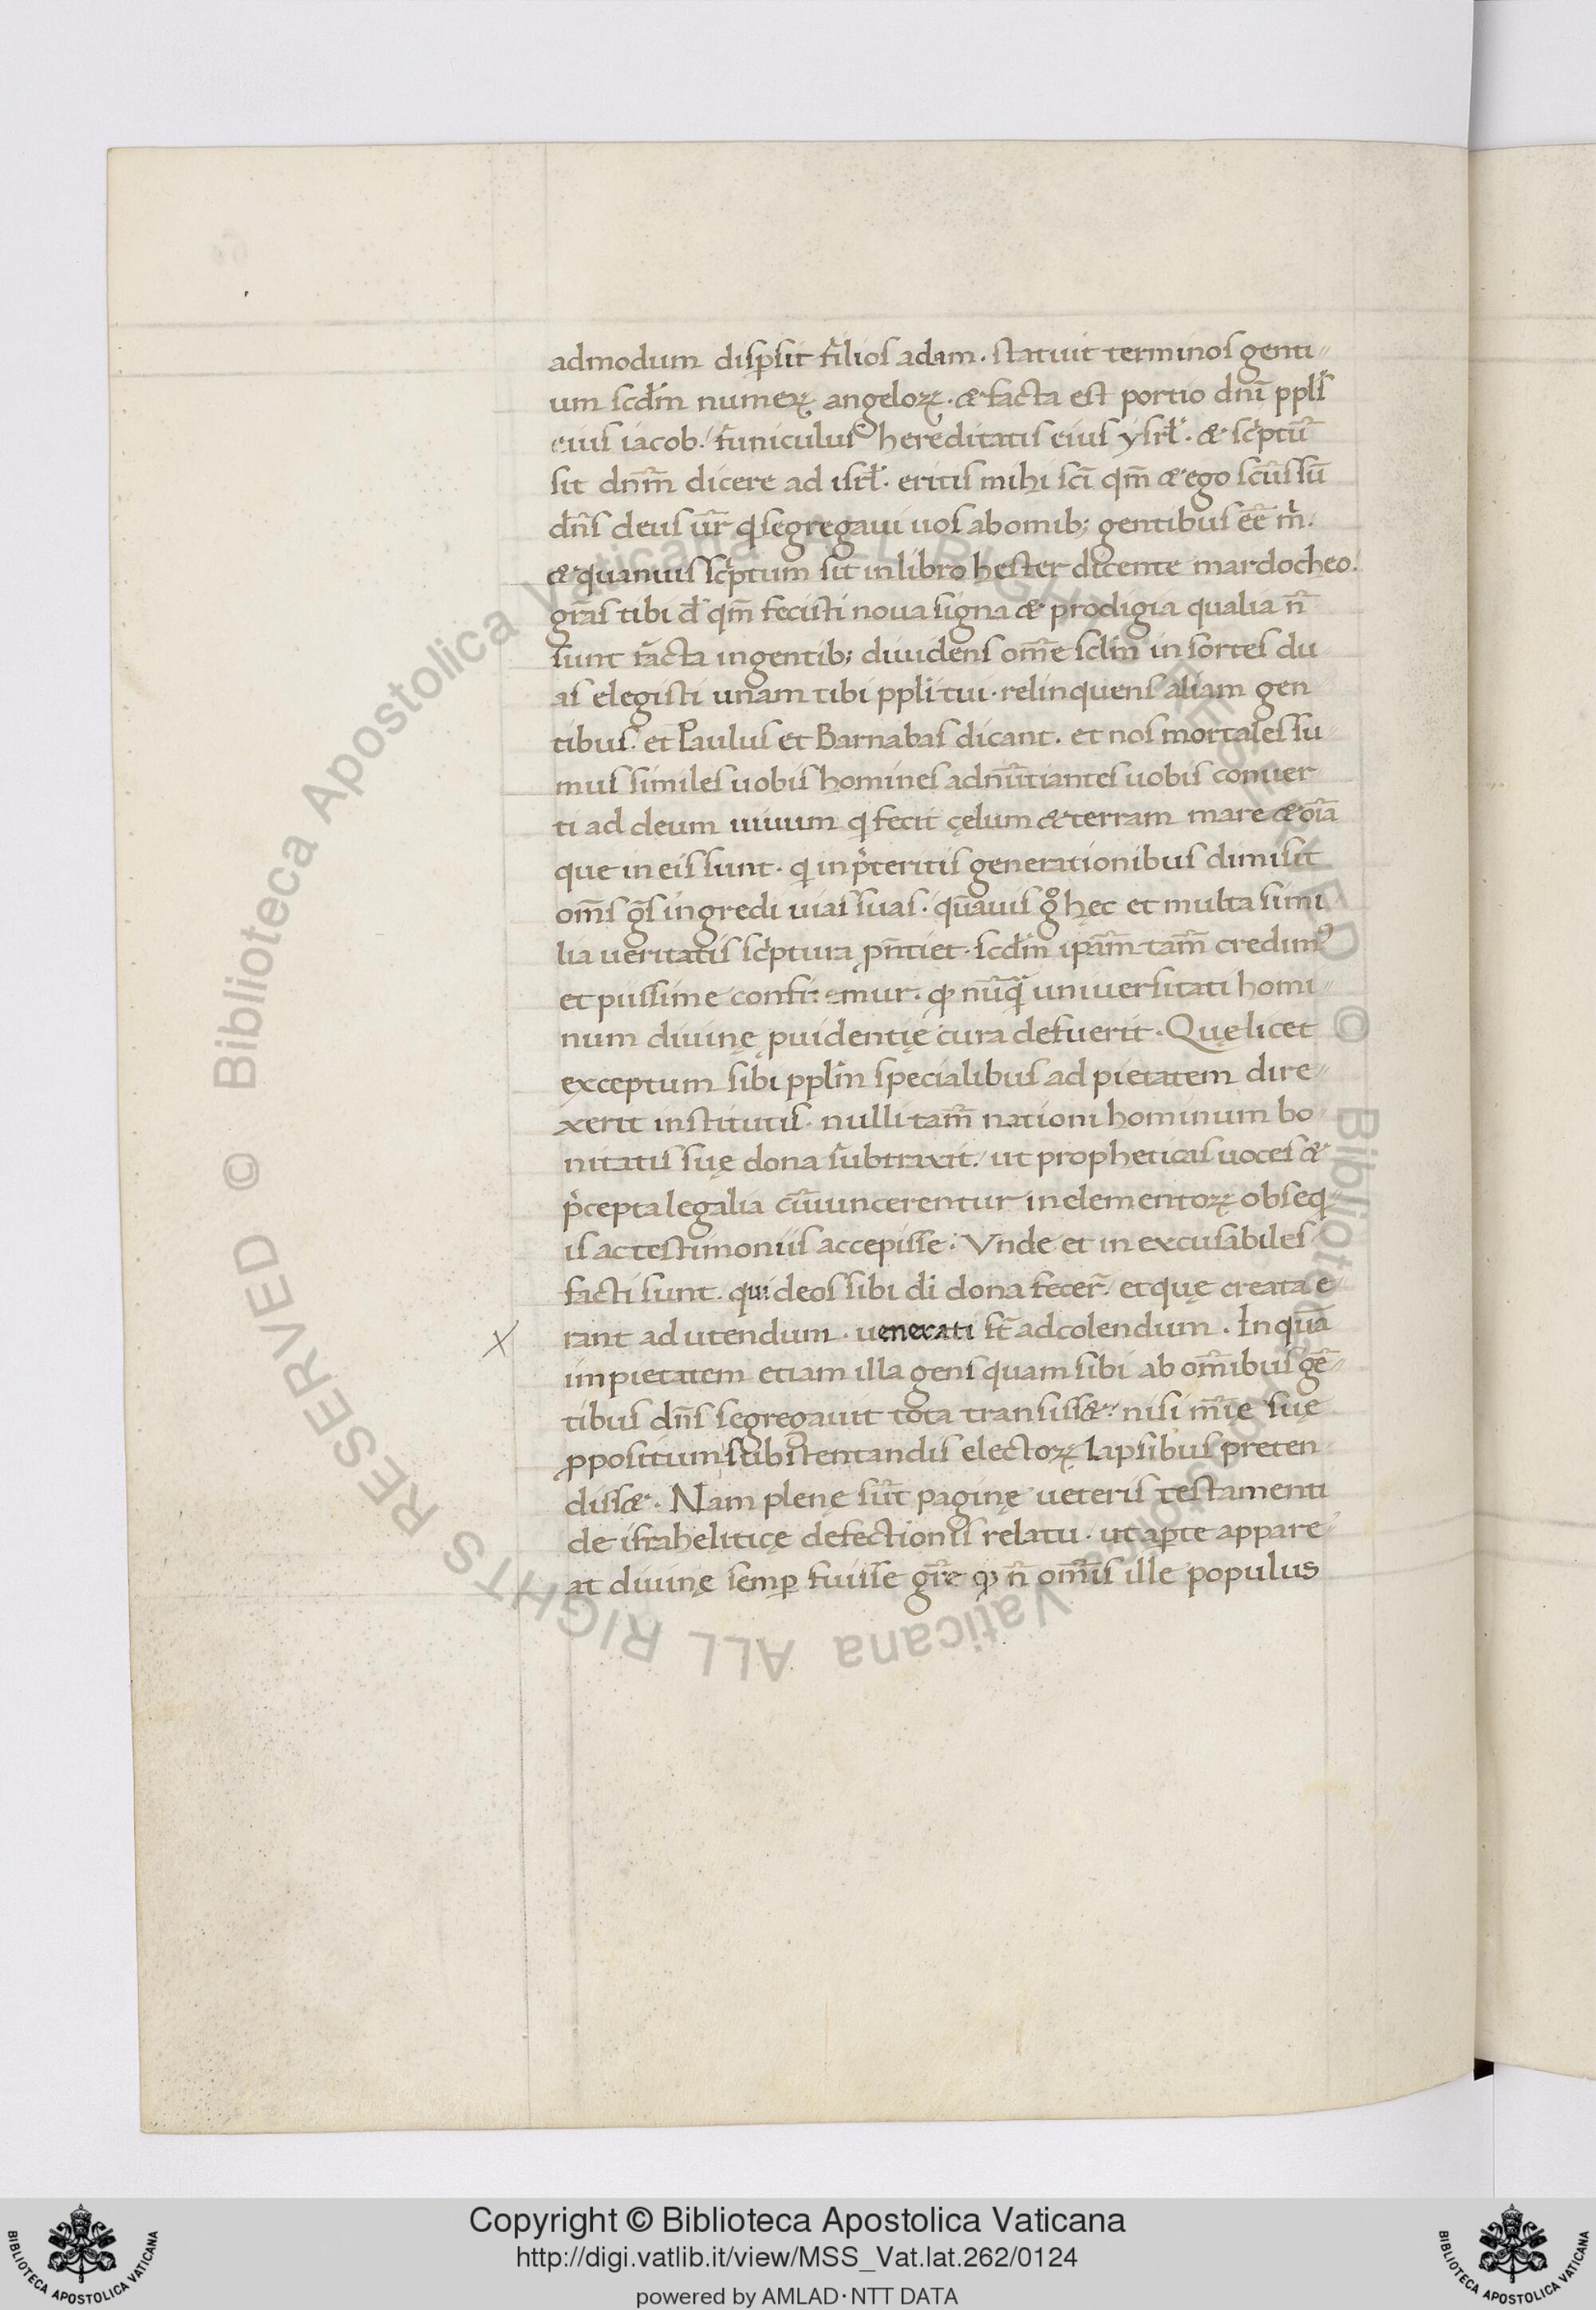 admodum disꝑsit filios adam. statuit terminos genti-
um scdm̄ numeꝝ angeloꝝ. & facta est portio dn̄i ppl̄s
eius iacob. funiculus hereditatis eius ysrl̄. & scͥptū
sit dn̄m̄ dicere ad isrl̄. eritis mihi sc̄i qm̄ & ego sc̄us sū
dn̄s deus ur̄ q segregaui uos ab omib; gentibus eē m̄.
& quanuis scͥptum sit in libro hester dicente mardocheo.
gr̄as tibi d̄s qm̄ fecisti noua signa & prodigia qualia n̄
sunt facta in gentib; diuidens om̄e sclm̄ in sortes du
as elegisti unam tibi ppl̄i tui. relinquens aliam gen
tibus. et Paulus et Barnabas dicant. et nos mortales su-
mus similes uobis homines adnūtiantes uobis conuer
ti ad deum uiuum q fecit cęlum & terram mare & oīa
que in eis sunt. q in p̄teritis generationibus dimisit
om̄s gēs ingredi uias suas. quāuis gͦ hęc et multa simi
lia ueritatis scͥptura pn̄tiet. scdm̄ ipām tam̄ credimꝰ
et piissime confitemur. ꝙ nūqͣ uniuersitati homi-
num diuinę ꝓuidentię cura defuerit. Quę licet
exceptum sibi pplm̄ specialibus ad pietatem dire-
xerit institutis. nulli tam̄ nationi hominum bo-
nitatis suę dona subtraxit. ut propheticas uoces &
p̄cepta legalia cūuincerentur in elementoꝝ obseq-
is ac testimoniis accepisse. Vnde et in excusabiles
facti sunt. qui deos sibi di dona fecer̄. et quę creata e-
rant ad utendum. uenerati st̄ ad colendum. In quā
impietatem etiam illa gens quam sibi ab om̄ibus gē-
tibus dn̄s segregauit tota transiss&. nisi m̄ię suę
ꝓpositum substentandis electoꝝ lapsibus preten-
diss&. Nam plenę sūt paginę ueteris testamenti
de israheliticę defectionis relatu. ut aꝑte appare-
at diuinę semꝑ fuisse gr̄e ꝙ n̄ om̄is ille populus
Copyright © Biblioteca Apostolica Vaticana
http://digi.vatlib.it/view/MSS_Vat.lat.262/0124
powered by AMLAD·NTT DATA
BIBLIOTECA APOSTOLICA VATICANA
BIBLIOTECA APOSTOLICA VATICANA
© Biblioteca Apostolica Vaticana ALL RIGHTS RESERVED © Biblioteca Apostolica Vaticana ALL RIGHTS RESERVED